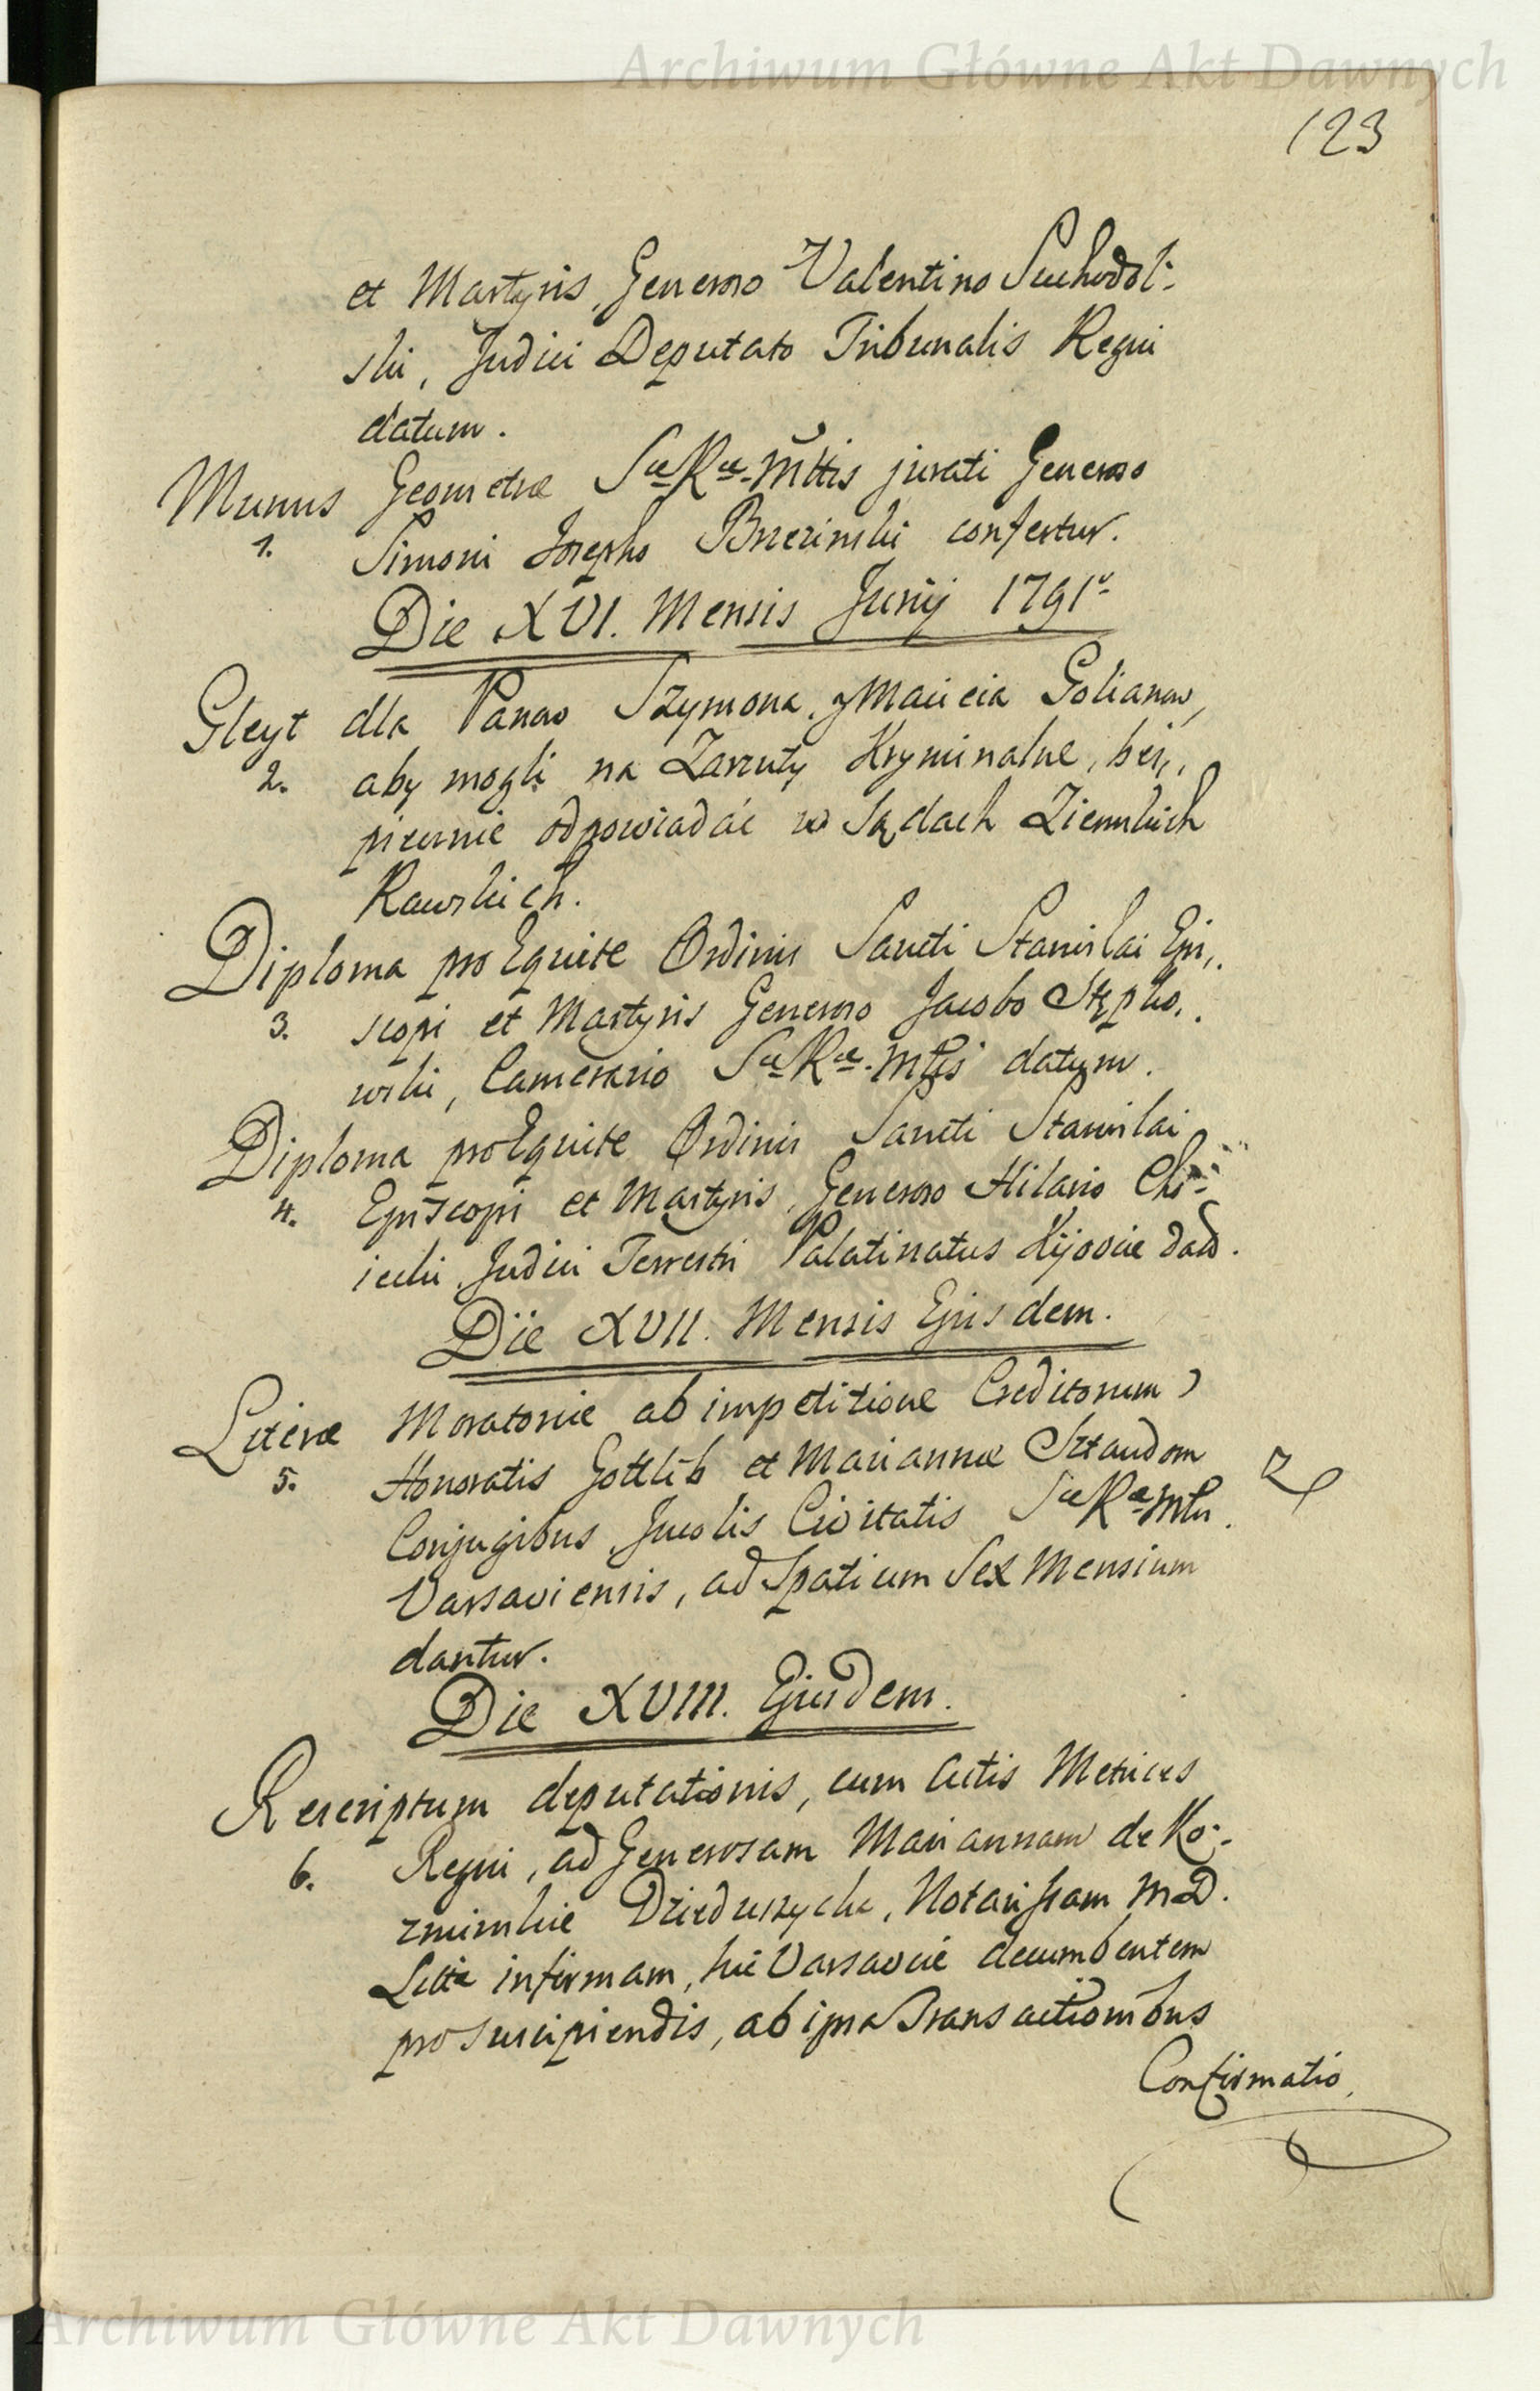 Archiwum Główne Akt Dawnych
123
et Martyris, Generoso Valentino Suchodol-
ski, Judici Deputato Tribunalis Regni
datum.
Munus Geometræ Sæ Ræ Mttis jurati Generoso
1. Simoni Josepho Brzezinski confertur.
Die XVI. Mensis Junij 1791o
Gleyt dla Panów Szymona, y Macieia Golianów,
2. aby mogli na Zarzuty Kryminalne, bes,,
piecznie odpowiadać w Sądach Ziemskich
Rawskich.
Diploma pro Equite Ordinis Sancti Stanislai Epi,,
3. scopi et Martyris Generoso Jacobo Stępko,,
wski, Camerario Sæ Ræ Mttis datum.
Diploma pro Equite Ordinis Sancti Stanislai
4. Episcopi et Martyris, Generoso Hilario Cho-
iecki, Judici Terrestri Palatinatus Kijoviæ dato.
Die XVII. Mensis Ejusdem.
Literæ Moratoriæ ab impetitione Creditorum,
5. Honoratis Gottlib et Mariannæ Sztaudom
Conjugibus, Incolis Civitatis Sæ Ræ Mttis.
Varsaviensis, ad Spatium Sex Mensium
dantur.
Die XVIII. Ejusdem.
Rescriptum deputationis, cum Actis Metrices
6. Regni, ad Generosam Mariannam de Ko-
zminskie Dzieduszycka, Notarissam M D.
Littæ infirmam, hic Varsaviæ decumbentem
pro suscipiendis, ab ipsa Transactionibus
Confirmatio.
Archiwum Główne Akt Dawnych